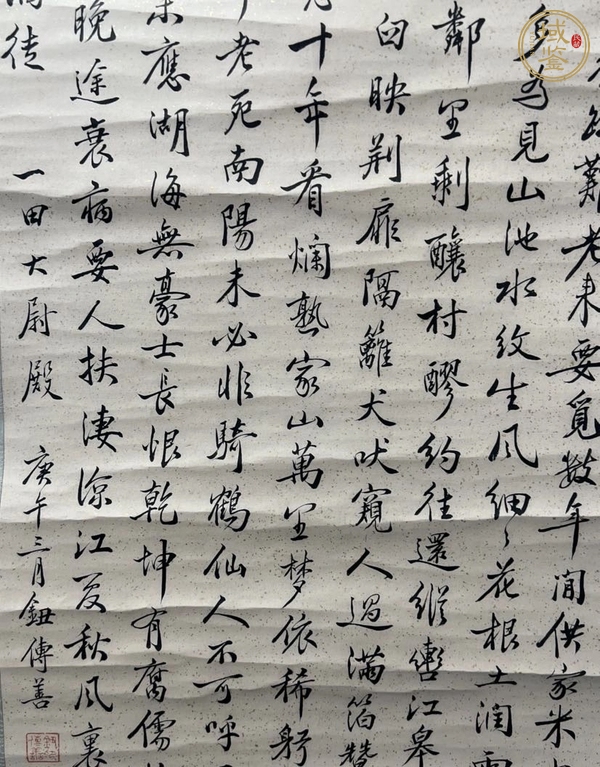 難老来要覓數年閒供家米
多為見山池水紋生風細〻花根土潤
鄰里剩釀村醪約往還緩轡江皋
臼映荆扉隔籬犬吠窺人過滿箔蠶
十年看爛熟家山萬里梦依稀躬
老死南陽未必非騎鶴仙人不可呼
未應湖海無豪士長恨乾坤有腐儒
晚途衰病要人扶淒涼江夏秋風裏
徒
一田大尉殿 庚午三月鈕傳善
域鑒